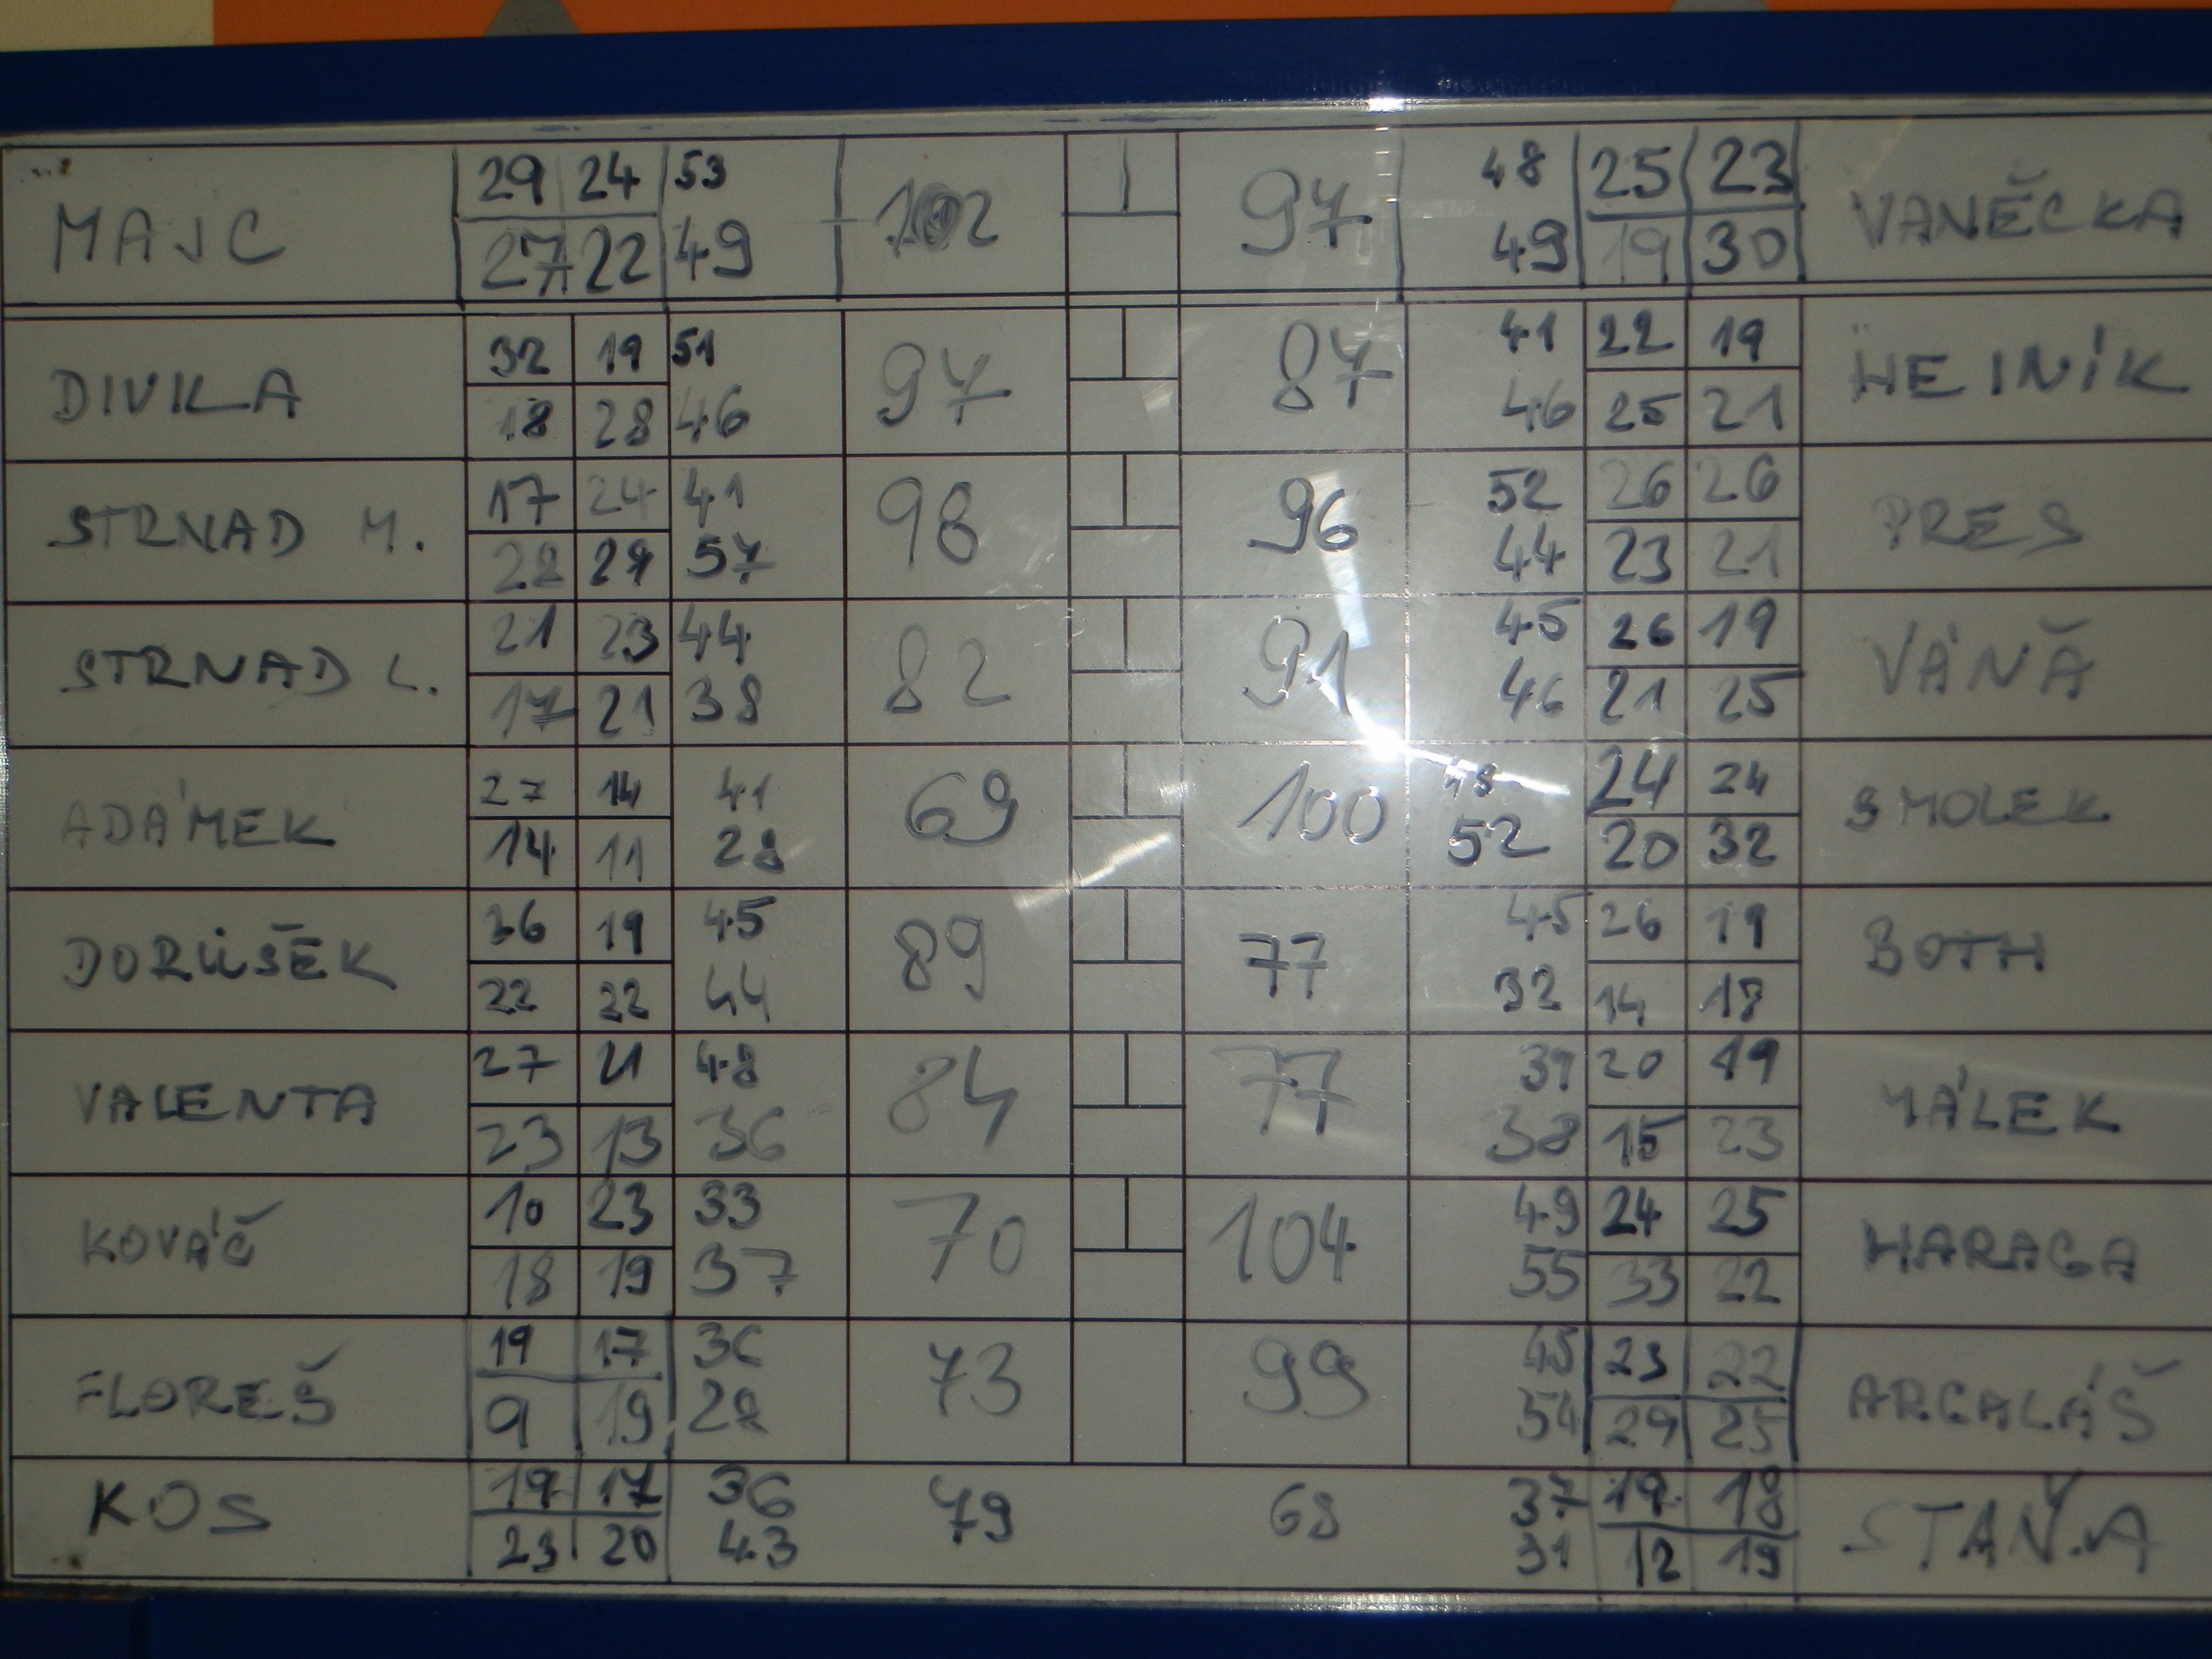 MAJC 29 24 53 102 97 48 25 23 VANĚČKA
27 22 49 49 19 30
DIVILA 32 19 51 97 87 41 22 19 HEINÍK
18 28 46 46 25 21
STRNAD M. 17 24 41 98 96 52 26 26 PRES
28 29 57 44 23 21
STRNAD L. 21 23 44 82 91 45 26 19 VÁŇA
17 21 38 46 21 25
ADÁMEK 27 14 41 69 100 48 24 24 SMOLEK
14 11 28 52 20 32
36 19 45 89 77 45 26 19 BOTH
22 22 44 32 14 18
VALENTA 27 21 48 84 77 39 20 19 MÁLEK
23 13 36 38 15 23
KOVÁČ 10 23 33 70 104 49 24 25 HARAGA
18 19 37 55 33 22
FLOREŠ 19 17 36 73 99 45 23 22 ARGALÁŠ
9 19 28 54 29 25
KOS 19 17 36 79 68 37 19 18 STAŇ.A
23 20 43 31 12 19